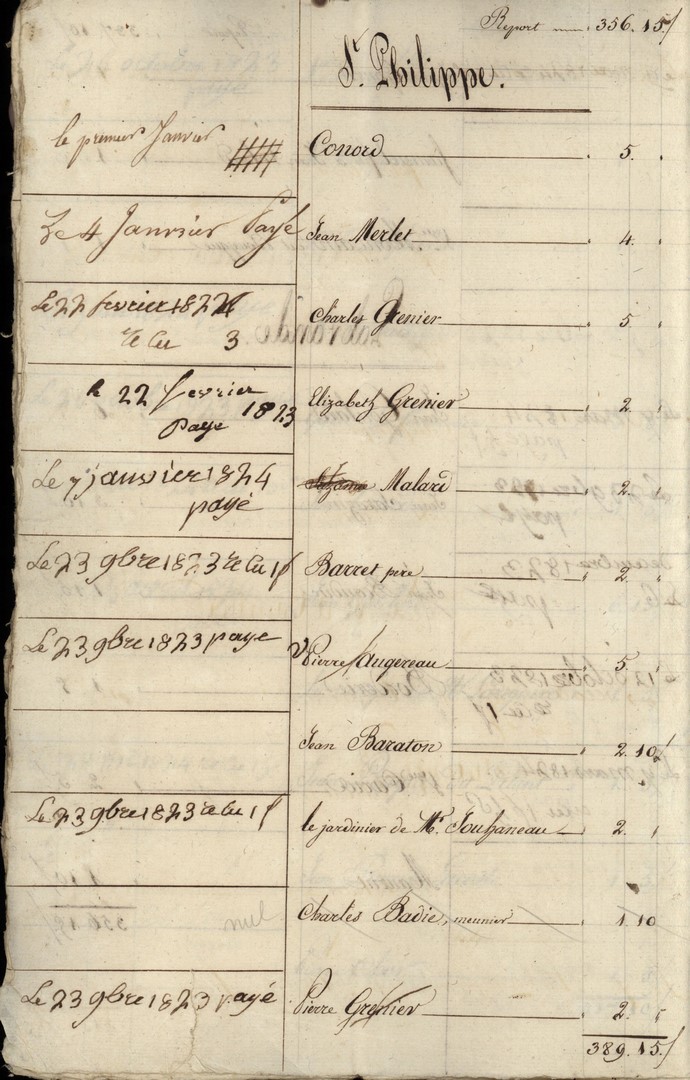 Report 356. 15 f
St. Philippe.
le premier Janvier
Conord 5.
Le 4 Janvier Payé
Jean Merlet 4.
Le 22 fevrier 1824
relu 3
Charles Grenier 5
le 22 fevrier
paye 1823
Elizabeth Grenier 2
Le 7 janvier 1824
payé
Malard 2.
Le 23 9bre 1823 relu 1 f
Barret père 2
Le 23 9bre 1823 paye
Pierre Augereau 5.
Jean Baraton 2. 10 f
Le 23 9bre 1823 relu 1 f
le jardinier de Mr. Jouhaneau 2.
nul
Charles Badie, meunier 1. 10
Le 23 9bre 1823 payé
Pierre Grenier 2.
389. 15 f